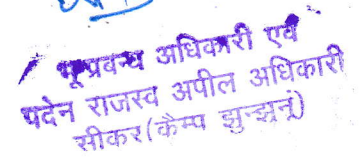 भू प्रबन्ध अधिकारी एवं
पदेन राजस्व अपील अधिकारी
सीकर(कैम्प झुन्झुनूं)